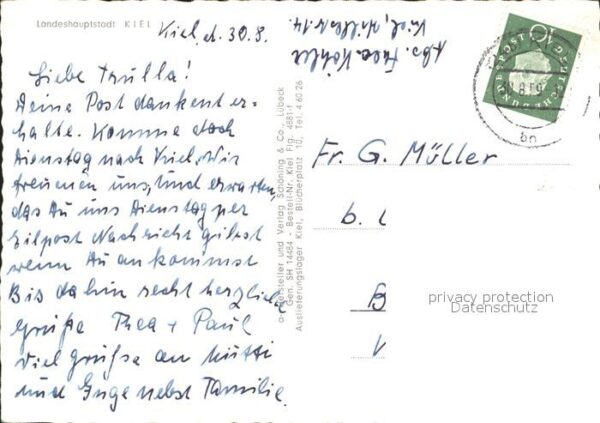 Landeshauptstadt KIEL
Kiel, d. 30.8.
Liebe Trulla!
Deine Post dankent er-
halte. Komme doch
Dienstag nach Kiel, Wir
freuen uns, und erwarten,
das Du uns Dienstag per
Eilpost Nachricht gibst
wenn Du ankommst
Bis dahin recht herzliche
Grüße Thea + Paul
Viel grüße an Mutti
und Inge nebst Familie.
Hersteller und Verlag Schöning & Co., Lübeck
Gen. SH 14484 - Bestell-Nr. Kiel Fig. 4681-1
Auslieferungslager Kiel, Blücherplatz 10, Tel. 4 60 26
Abs. Thea Köhler
Kiel,
14.
DEUTSCHE BUNDESPOST
10
Fr. G. Müller
b. l
B
V
privacy protection
Datenschutz